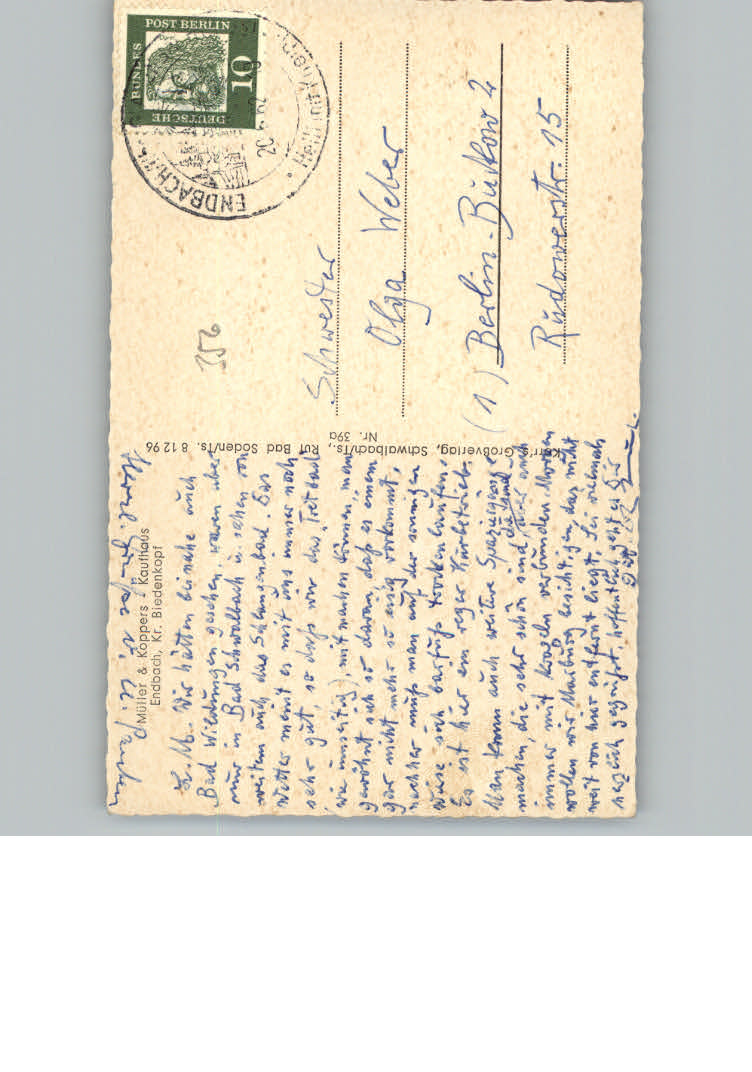 Herzl. Grüße
Müller & Köppers - Kaufhaus
Endbach, Kr. Biedenkopf
L. M. Wir hätten beinahe auch
Bad Wildungen gesehen, waren aber
nur in Bad Schwalbach u. sahen von
weitem auch das Schlangenbad. Das
Wetter meint es mit uns immer noch
sehr gut, so daß wir das "Tretbad"
(wie unseitig) mitmachen können, man
gewöhnt sich so daran, daß es einem
gar nicht mehr so eisig vorkommt,
nachher muß man auf der sonnigen
Wiese sich barfuß trockenlaufen.
Es ist hier ein reger Kurbetrieb.
Man kann auch weitere Spaziergänge
machen, die sehr schön sind, aber auch
immer mit kraxeln verbunden. Morgen
wollen wir Marburg besichtigen, das nicht
weit von hier entfernt liegt. Sei vielmals
herzlich gegrüßt, hoffentlich geht es Dir
gut.
Karr's Großverlag, Schwalbach/Ts., Ruf Bad Soden/Ts. 8 12 96
Nr. 39a
DEUTSCHE BUNDESPOST BERLIN
10
ENDBACH
20
352
Schwester
Olga Weber
(1) Berlin-Buckow 2
Rudowerstr. 15